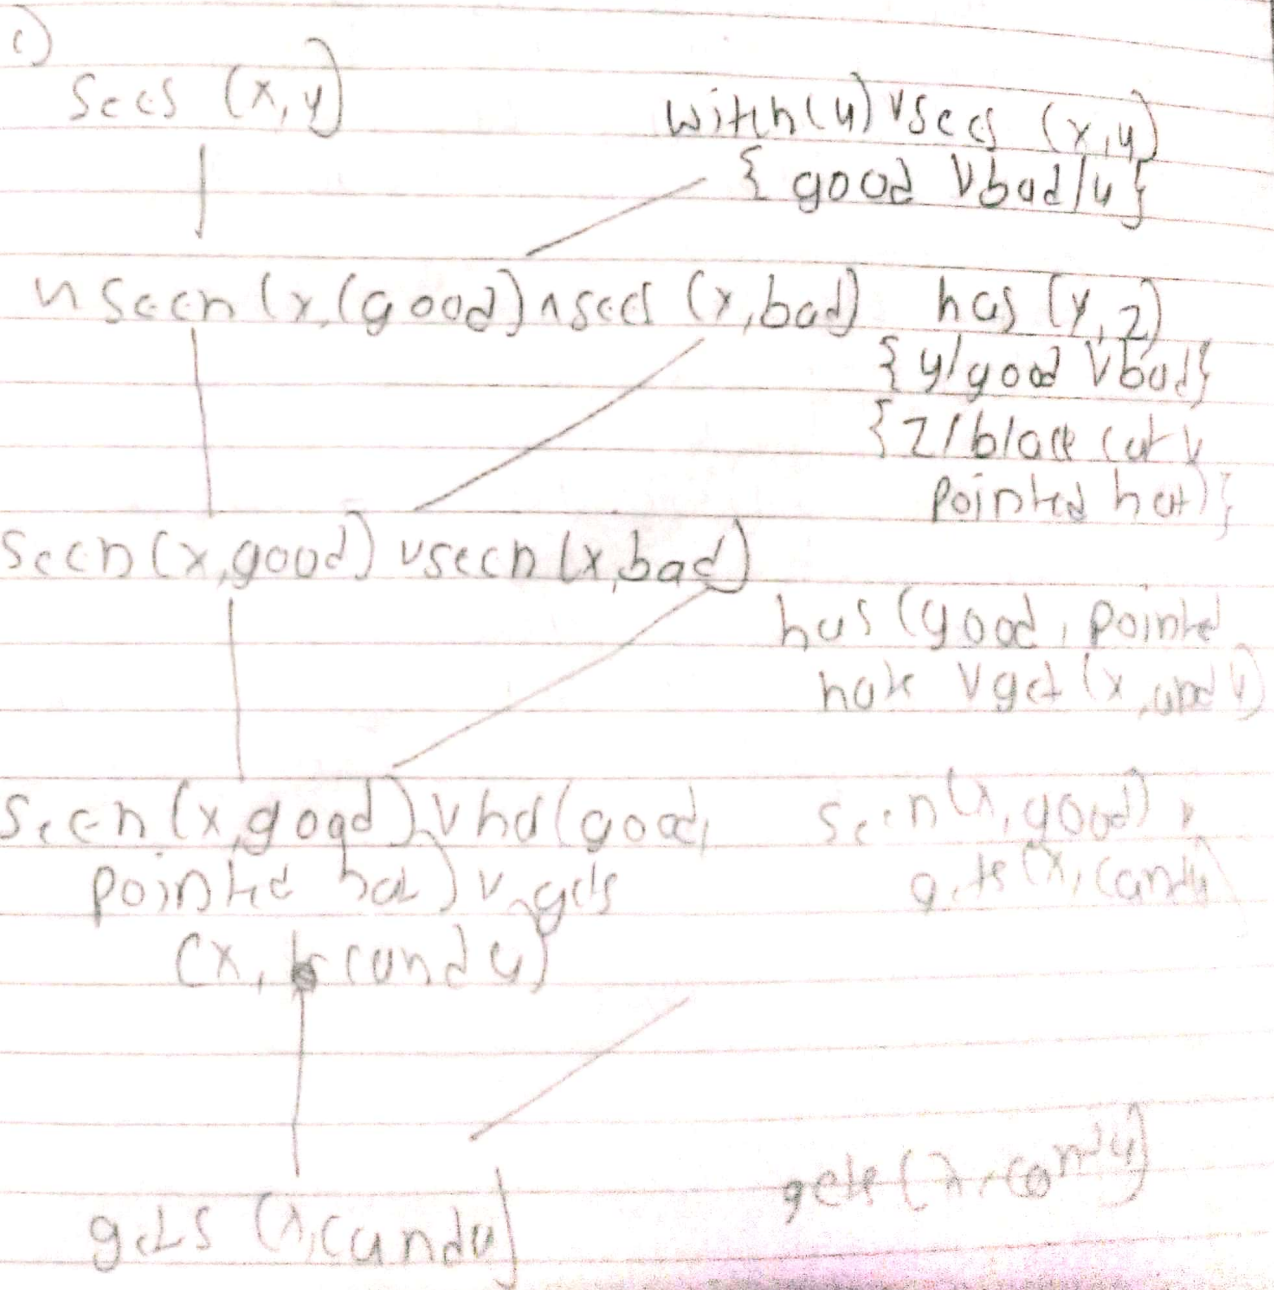 c)
Sees (x,y)
witch(y) v sees (x,y)
{ good V bad/y}
n seen (x,(good) n sees (x,bad) has (y,z)
{ y/good V bad}
{z/black cat v
pointed hat)}
seen (x,good) v seen (x,bad)
has (good, pointed
hat v get (x,candy)
seen (x,good) v ha (good,
pointed hat) v gets
(x, candy)
seen (x,good) v
gets (x, candy)
gets (x,candy)
gets (x,candy)